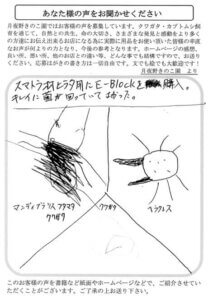 あなた様の声をお聞かせください
月夜野きのこ園ではお客様の声を募集しています。クワガタ・カブトムシ飼
育を通じて、自然との共生、命の大切さ、さまざまな発見と感動をより多く
の方達にお伝え出来るお店になる為に実際に用品をお使い頂いた皆様の率直
なお声が何よりの力となり、今後の参考となります。ホームページの感想、
良い所、悪い所、他のお店との違いなど、どんな事でも結構ですので、お送り
ください。応募はがきの書き方は一切自由です。文でも絵でも大歓迎です！
月夜野きのこ園 より
スマトラヒラタ用にE-Blockを購入。
キレイに菌が回っていてよかった。
マンディブラリスフタマタ
クワガタ
クワガタ
ヘラクレス
このお客様の声を書籍など紙面やホームページなどで、ご紹介させていた
だくことがございます。ご了承の上お送り下さい。